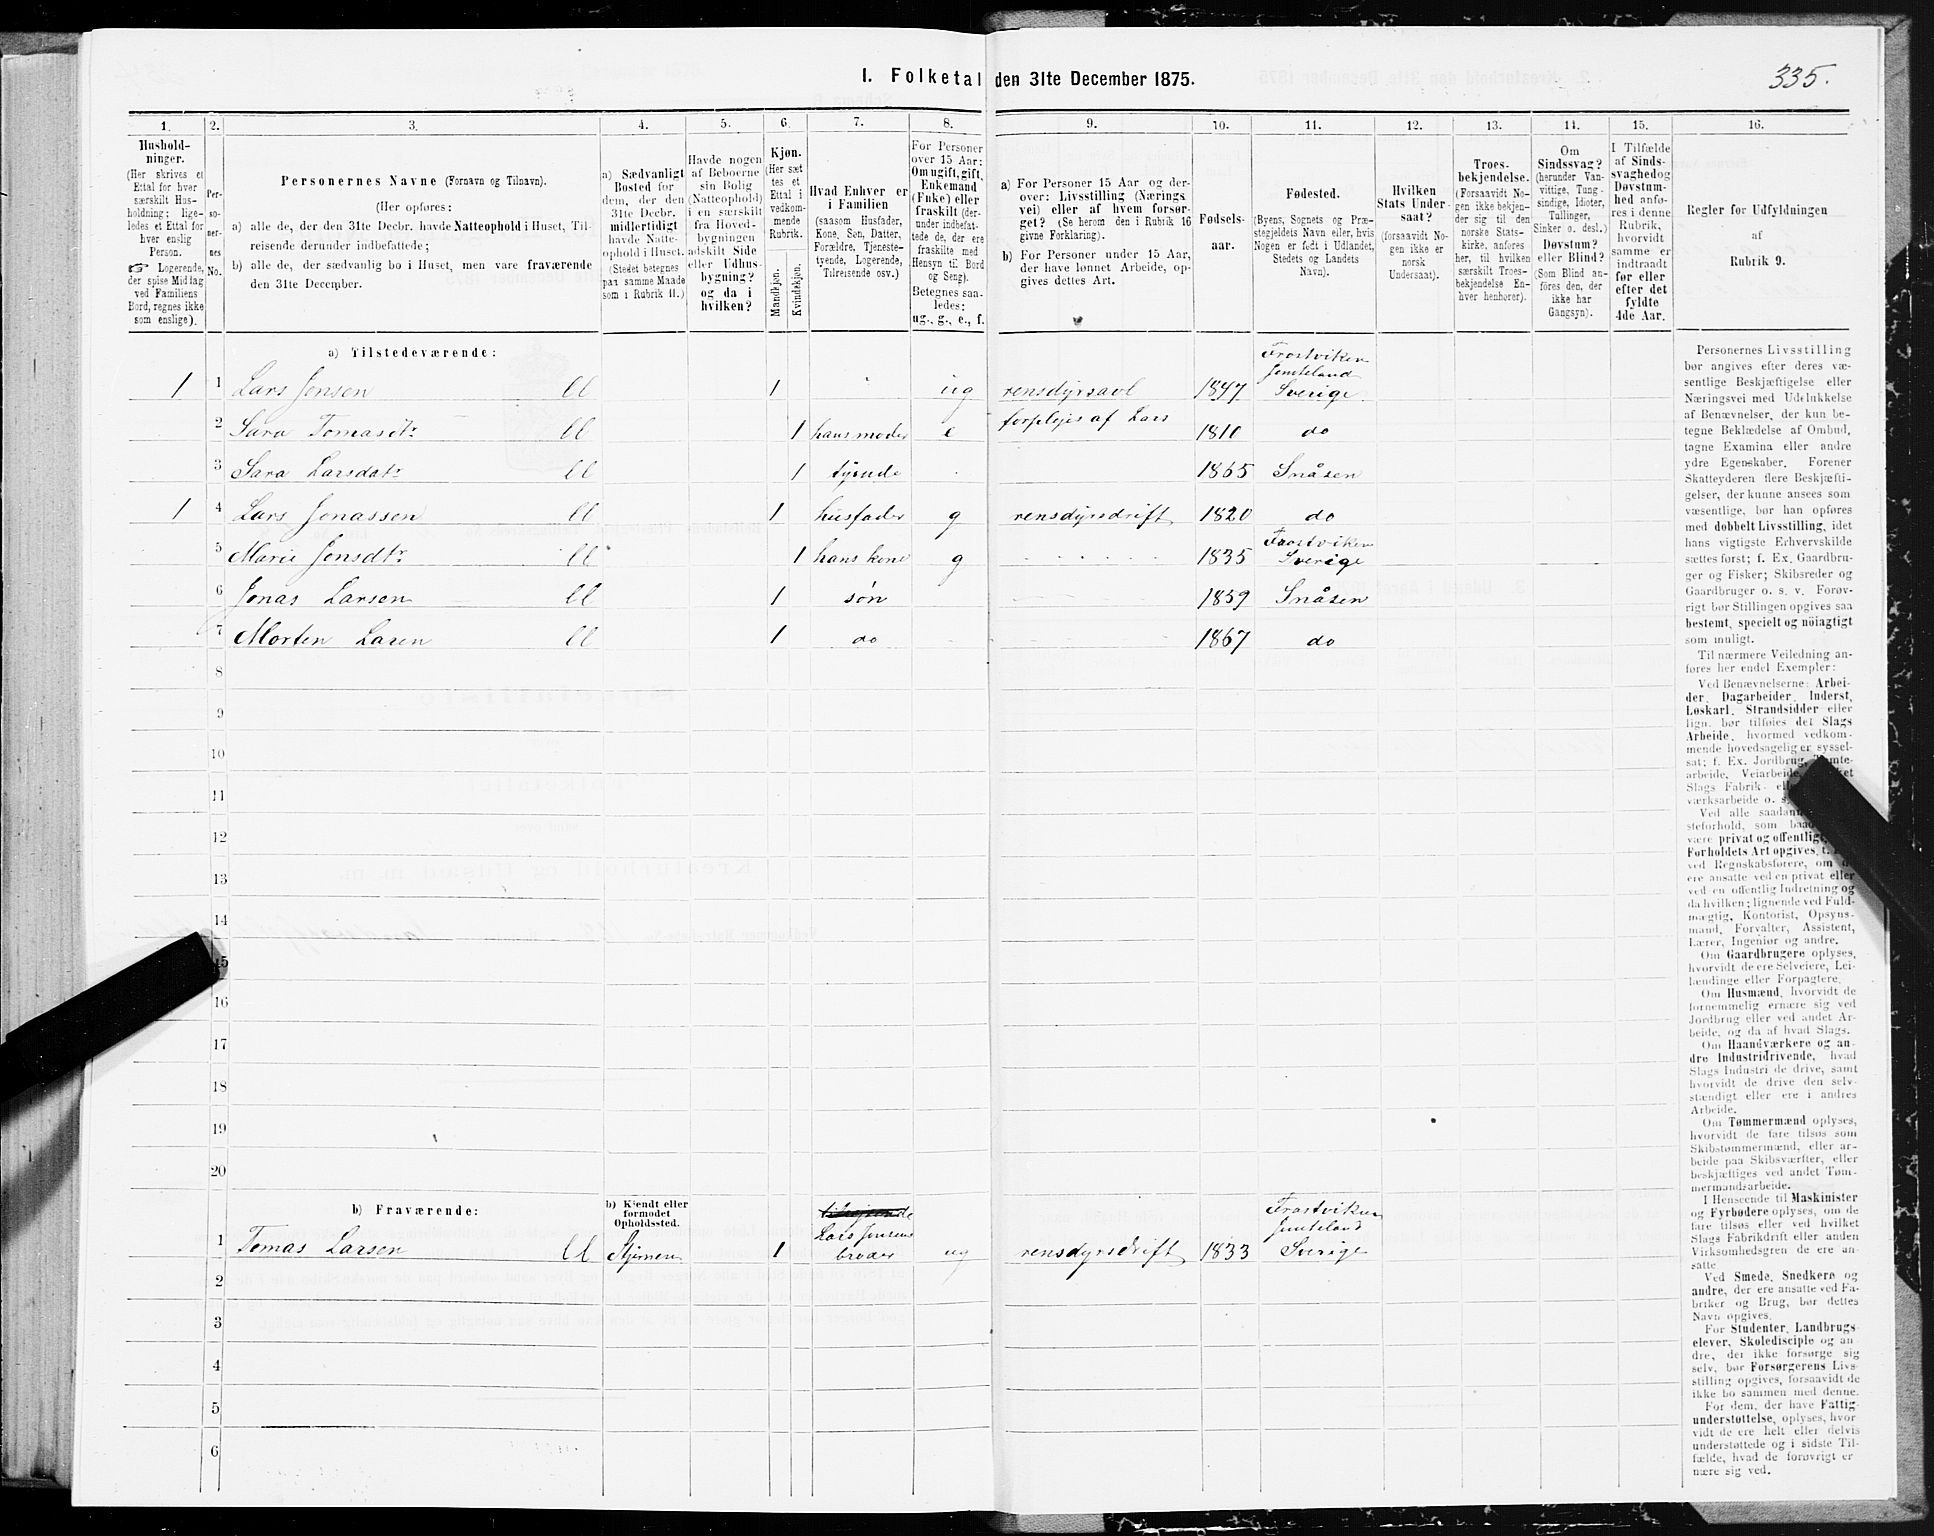 I. Folketal den 31te December 1875.
335.
1. 2. 3. 4. 5. 6. 7. 8. 9. 10. 11. 12. 13. 14. 15. 16.
Hushold-
ninger.
(Her skrives et
Ettal for hver
særskilt Hus-
holdning; lige-
ledes et Ettal for
hver enslig
Person.
☞ Logerende,
der spise Middag
ved Familiens
Bord, regnes ikke
som enslige).
Per-
so-
ner-
nes
No.
Personernes Navne (Fornavn og Tilnavn).
(Her opføres:
a) alle de, der den 31te Decbr. havde Natteophold i Huset, Til-
reisende derunder indbefattede;
b) alle de, der sædvanlig bo i Huset, men vare fraværende
den 31te December.
a) Sædvanligt
Bosted for
dem, der den
31te Decbr.
midlertidigt
havde Natte-
ophold i Huset.
(Stedet betegnes
paa samme Maade
som i Rubrik 11.)
Havde nogen
af Beboerne
sin Bolig
(Natteophold)
i en særskilt
fra Hoved-
bygningen
adskilt Side
eller Udhus-
bygning?
og da i
hvilken?
Kjøn.
(Her sæt
tes et
Ettal i
vedkom-
mende
Rubrik.
Mandkjøn.
Kvindekjøn.
Hvad Enhver er
i Familien
(saasom Husfader,
Kone, Søn, Datter,
Forældre, Tjeneste-
tyende, Logerende,
Tilreisende osv.)
For Personer
over 15 Aar:
Om ugift, gift,
Enkemand
(Enke) eller
fraskilt (der-
under indbefat-
tede de, der ere
fraskilte med
Hensyn til Bord
og Seng).
Betegnes saa-
ledes:
ug., g., e., f.
a) For Personer 15 Aar og der-
over: Livsstilling (Nærings
vei) eller af hvem forsør-
get? (Se herom den i Rubrik 16
givne Forklaring).
b) For Personer under 15 Aar,
der have lønnet Arbeide, op-
gives dettes Art.
Fødsels-
aar.
Fødested.
(Byens, Sognets og Præ-
stegjeldets Navn eller, hvis
Nogen er født i Udlandet,
Stedets og Landets
Navn).
Hvilken
Stats Under-
saat?
(forsaavidt No-
gen ikke er
norsk
Undersaat).
Troes-
bekjendelse.
(Forsaavidt No-
gen ikke bekjen-
der sig til den
norske Stats-
kirke, anføres
her, til hvilken
særskilt Troes-
bekjendelse En-
hver henhører).
Om
Sindssvag?
(herunder Van-
vittige, Tung-
sindige, Idioter,
Tullinger,
Sinker o. desl.)
Døvstum?
eller Blind?
(Som Blind an-
føres den, der
ikke har
Gangsyn).
I Tilfælde
af Sinds-
svaghed og
Døvstum-
hed anfø-
res i denne
Rubrik,
hvorvidt
samme er
indtraadt
før eller
efter det
fyldte
4de Aar.
Regler for Udfyldningen
af
Rubrik 9.
a) Tilstedeværende:
Frostviken
Jemteland
1 1 Lars Jensen ll 1 ug rensdyrsavl 1847 Sverige
2 Sara Tomasdtr ll 1 hans moder e forpleies af Lars 1810 do
3 Sara Larsdatr ll 1 tyende 1865 Snåsen
1 4 Lars Jonassen ll 1 husfader g rensdyrsdrift 1820 do
Frostviken
5 Marie Jonsdtr ll 1 hans kone g 1835 Sverige
6 Jonas Larsen ll 1 søn 1859 Snåsen
7 Morten Laren ll 1 do 1867 do
8
9
10
11
12
13
14
15
16
17
18
19
20
b) Fraværende:
b) Kjendt eller
formodet
Opholdssted.
Frostviken
Lars Jensens Jemteland
1 Tomas Larsen ll 1 broder ug rensdyrsdrift 1833 Sverige
2
3
4
5
6
Personernes Livsstilling
bør angives efter deres væ-
sentlige Beskjæftigelse eller
Næringsvei med Udelukkelse
af Benævnelser, der kun be-
tegne Beklædelse af Ombud,
tagne Examina eller andre
ydre Egenskaber. Forener
Skatteyderen flere Beskjæfti-
gelser, der kunne ansees som
væsentlige, bør han opføres
med dobbelt Livsstilling, idet
hans vigtigste Erhvervskilde
sættes først; f. Ex. Gaardbru-
ger og Fisker; Skibsreder og
Gaardbruger o. s. v. Forøv-
rigt bør Stillingen opgives saa
bestemt, specielt og nöiagtigt
som muligt.
Til nærmere Veiledning an-
føres her endel Exempler:
Ved Benævnelserne: Arbei-
der, Dagarbeider, Inderst,
Løskarl, Strandsidder eller
lign. bør tilføies det Slags
Arbeide, hvormed vedkom-
mende hovedsagelig er syssel-
sat; f. Ex. Jordbrug,
arbeide, Veiarbeide,
Slags Fabrik-
værksarbeide o. s.
Ved alle saadan
steforhold, som
være privat og offentlig
Forholdets Art opgives,
ved Regnskabsførere, om
ere ansatte ved en privat eller
ved en offentlig Indretning og
da hvilken; lignende ved Fuld-
mægtig, Kontorist, Opsyns-
mand, Forvalter, Assistent,
Lærer, Ingeniør og andre.
Om Gaardbrugere oplyses,
hvorvidt de ere Selveiere, Lei-
lændinge eller Forpagtere.
Om Husmænd, hvorvidt de
fornemmelig ernære sig ved
Jordbrug eller ved andet Ar-
beide, og da af hvad Slags.
Om Haandværkere og an-
dre Industridrivende, hvad
Slags Industri de drive, samt
hvorvidt de drive den selv-
stændigt eller ere i andres
Arbeide.
Om Tømmermænd oplyses,
hvorvidt de fare tilsøs som
Skibstømmermænd, eller ar-
beide paa Skibsværfter, eller
beskjæftiges ved andet Tøm-
mermandsarbeide.
I Henseende til Maskinister
og Fyrbødere oplyses, om de
fare tilsøs eller ved hvilket
Slags Fabrikdrift eller anden
Virksomhedsgren de ere an-
satte.
Ved Smede, Snedkere og
andre, der ere ansatte ved Fa-
briker og Brug, bør dettes
Navn opgives.
For Studenter, Landbrugs-
elever, Skoledisciple og an
dre, der ikke forsørge sig
selv, bør Forsørgerens Livs-
stilling opgives, forsaavidt de
ikke bo sammen med denne.
For dem, der have Fattig-
understøttelse, oplyses, hvor
vidt de ere helt eller delvis
understøttede og i sidste Til-
fælde, hvad de forøvrigt er
nære sig ved.